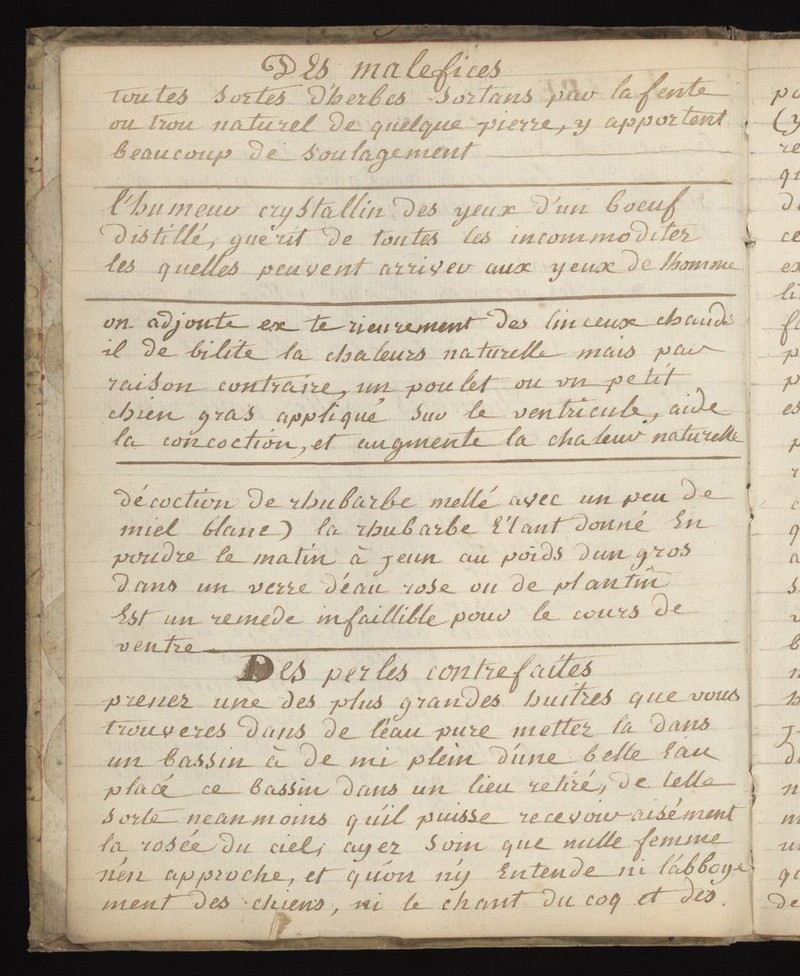 Des malefices
toutes sortes d'herbes sortans par la fente
ou trou naturel de quelque pierre, y apportent
beaucoup de soulagement
l'humeur crystallin des yeux d'un boeuf
distillé, guerit de toutes les incommoditez
les quelles peuvent arriver aux yeux de lhomme
on adjoute ex te rieurement des linceux chauds
il de bilite la chaleurs naturelle mais par
raison contraire, un poulet ou un petit
chien gras appliqué sur le ventricule, aide
la concoction, et augmente la chaleur naturelle
décoction de rhubarbe mellé avec un peu de
miel blanc) la rhubarbe étant donné en
poudre le matin à jeun au poids dun gros
dans un verre d'éau rose ou de plantin
est un remede infaillible pour le cours de
ventre
Des perles contrefaites
prenez une des plus grandes huitres que vous
trouveres dans de l'éau pure mettez la dans
un bassin à de mi plein d'une belle eau
placé ce bassin dans un lieu retiré, de telle
sorte neanmoins qu'il puisse recevoir aisément
la rosée du ciel, ayez soin que nulle femme
n'én approche, et qu'on n'y entende ni l'abboye
ment des chiens, ni le chant du coq et des.